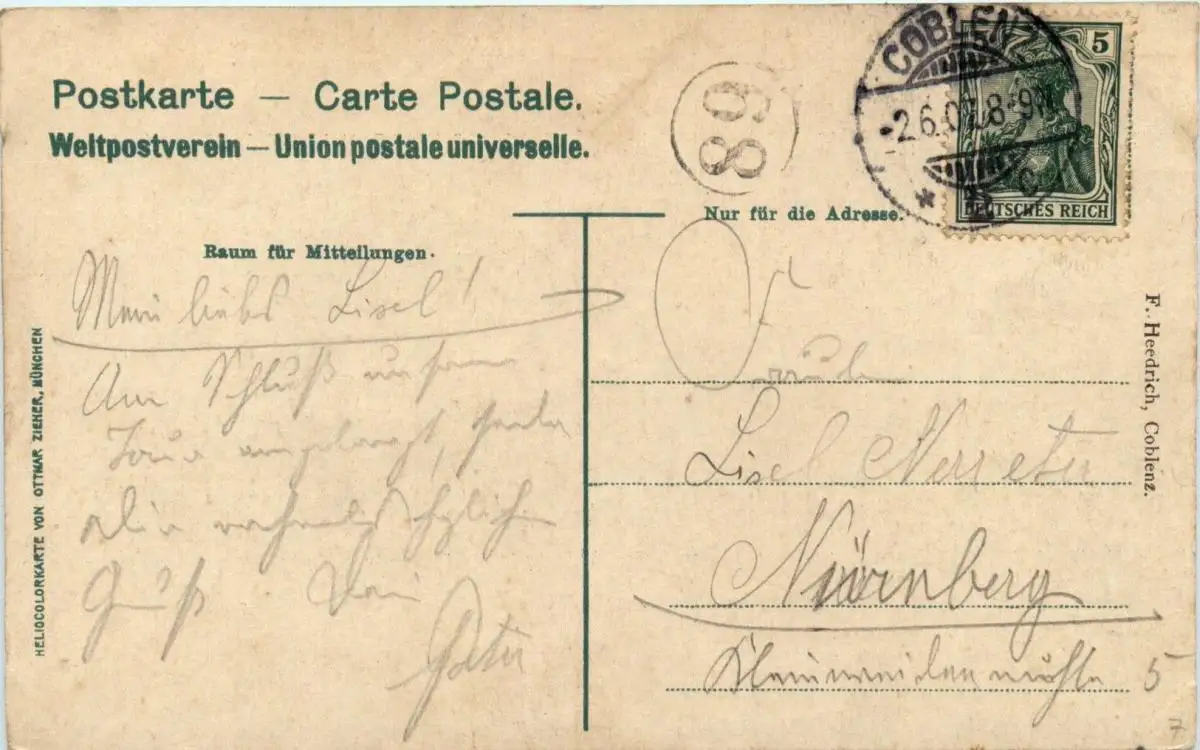 Postkarte — Carte Postale.
Weltpostverein — Union postale universelle.
68
COBLENZ
2.6.07. 8-9N
5
DEUTSCHES REICH
Nur für die Adresse.
Raum für Mitteilungen.
Mein liebes Lisel!
Am Schluß unserer
Tour angelangt, sende
Dir nochmals herzliche
Gruß Dein
Peter
Fräulein
Lisel
Nürnberg
Kleinweidenmühle 5
F. Heedrich, Coblenz.
HELIOCOLORKARTE VON OTTMAR ZIEHER, MÜNCHEN
7